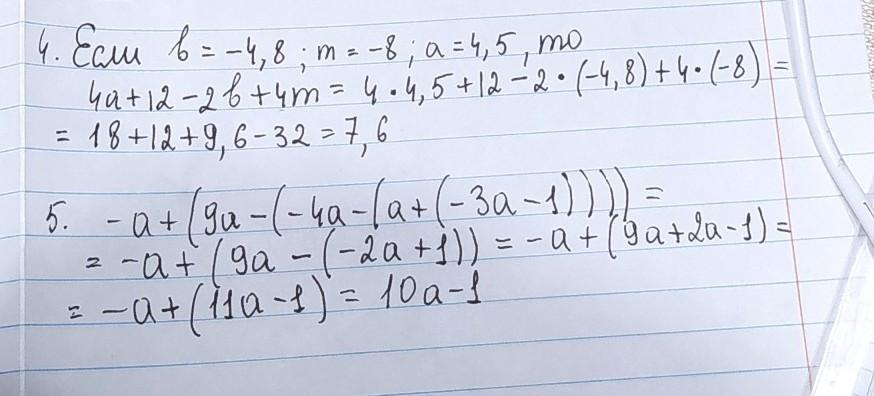 4. Если b = -4,8 ; m = -8 ; a = 4,5 , то
4a+12-2b+4m = 4·4,5+12-2·(-4,8)+4·(-8) =
= 18+12+9,6-32=7,6
5. -a+(9a-(-4a-(a+(-3a-1)))) =
= -a+(9a-(-2a+1)) = -a+(9a+2a-1) =
= -a+(11a-1) = 10a-1